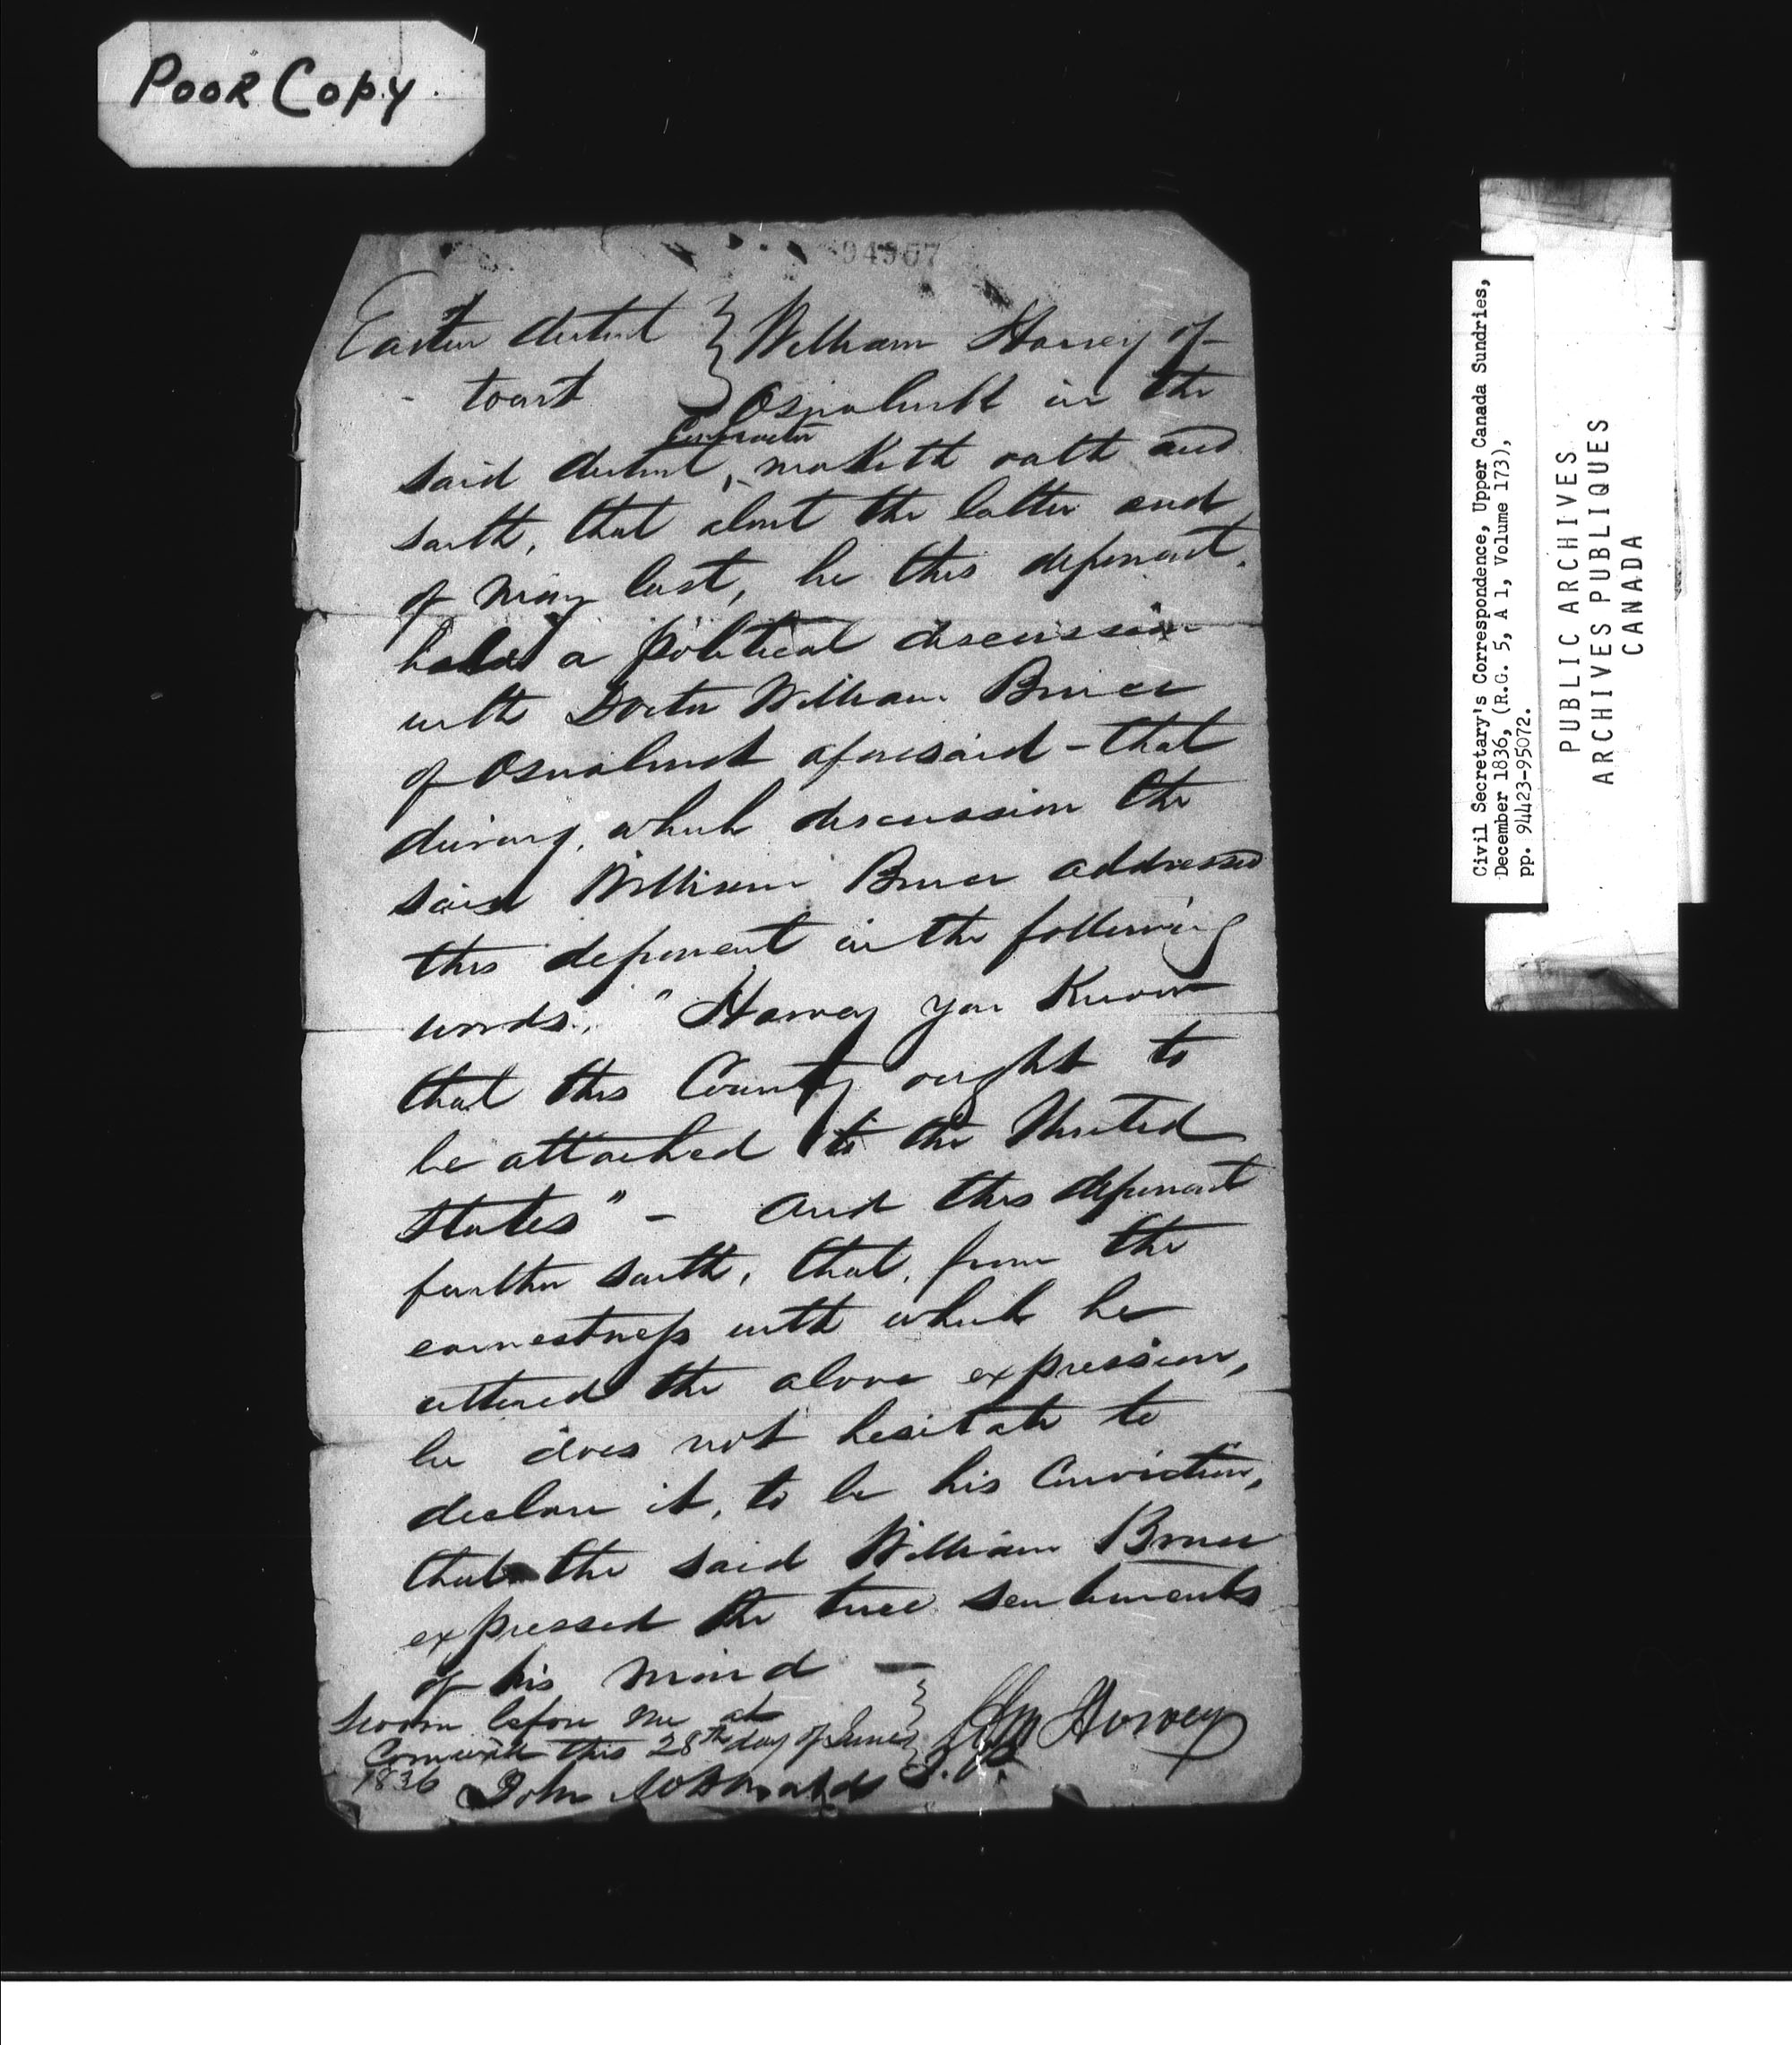 Poor Copy.
94957
Eastern district } William Harvey of
to wit } Osnabruck in the
Contractor
said district, maketh oath and
saith, that about the latter end
of May last, he this deponent
held a political discussion
with Doctor William Bruce
of Osnabruck aforesaid - that
during, which discussion the
said William Bruce addressed
this deponent in the following
words. "Harvey you know
that this Country ought to
be attached to the United
States" - And this deponent
further saith, that, from the
earnestness with which he
uttered the above expression,
he does not hesitate to
declare it, to be his conviction,
that the said William Bruce
expressed the true sentiments
of his mind —
Sworn before me at
Cornwall this 28th day of June } Wm Harvey
1836 John McDonald J.P.
Civil Secretary's Correspondence, Upper Canada Sundries,
December 1836, (R.G. 5, A 1, Volume 173),
pp. 94423-95072.
PUBLIC ARCHIVES
ARCHIVES PUBLIQUES
CANADA